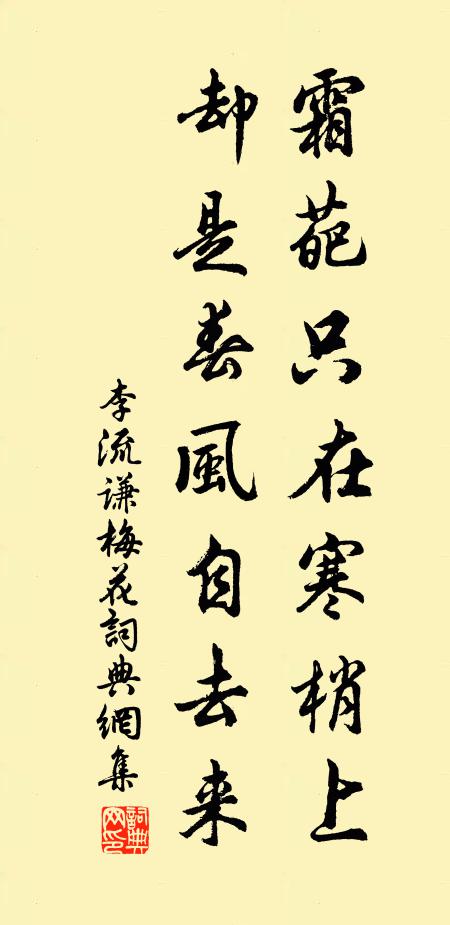 霜葩只在寒梢上
却是春風自去来
李流谦梅花詞典網集
詞典网印